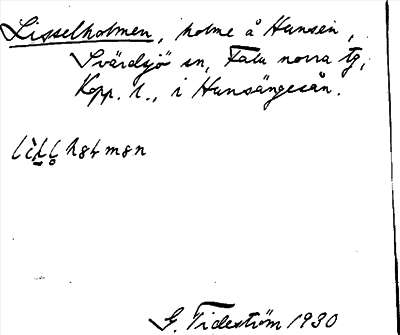 Lisselholmen, holme å Hunsen,
Svärdsjö sn, Falu norra tg,
Kopp. l., i Hunsängesån.
G. Tideström 1930